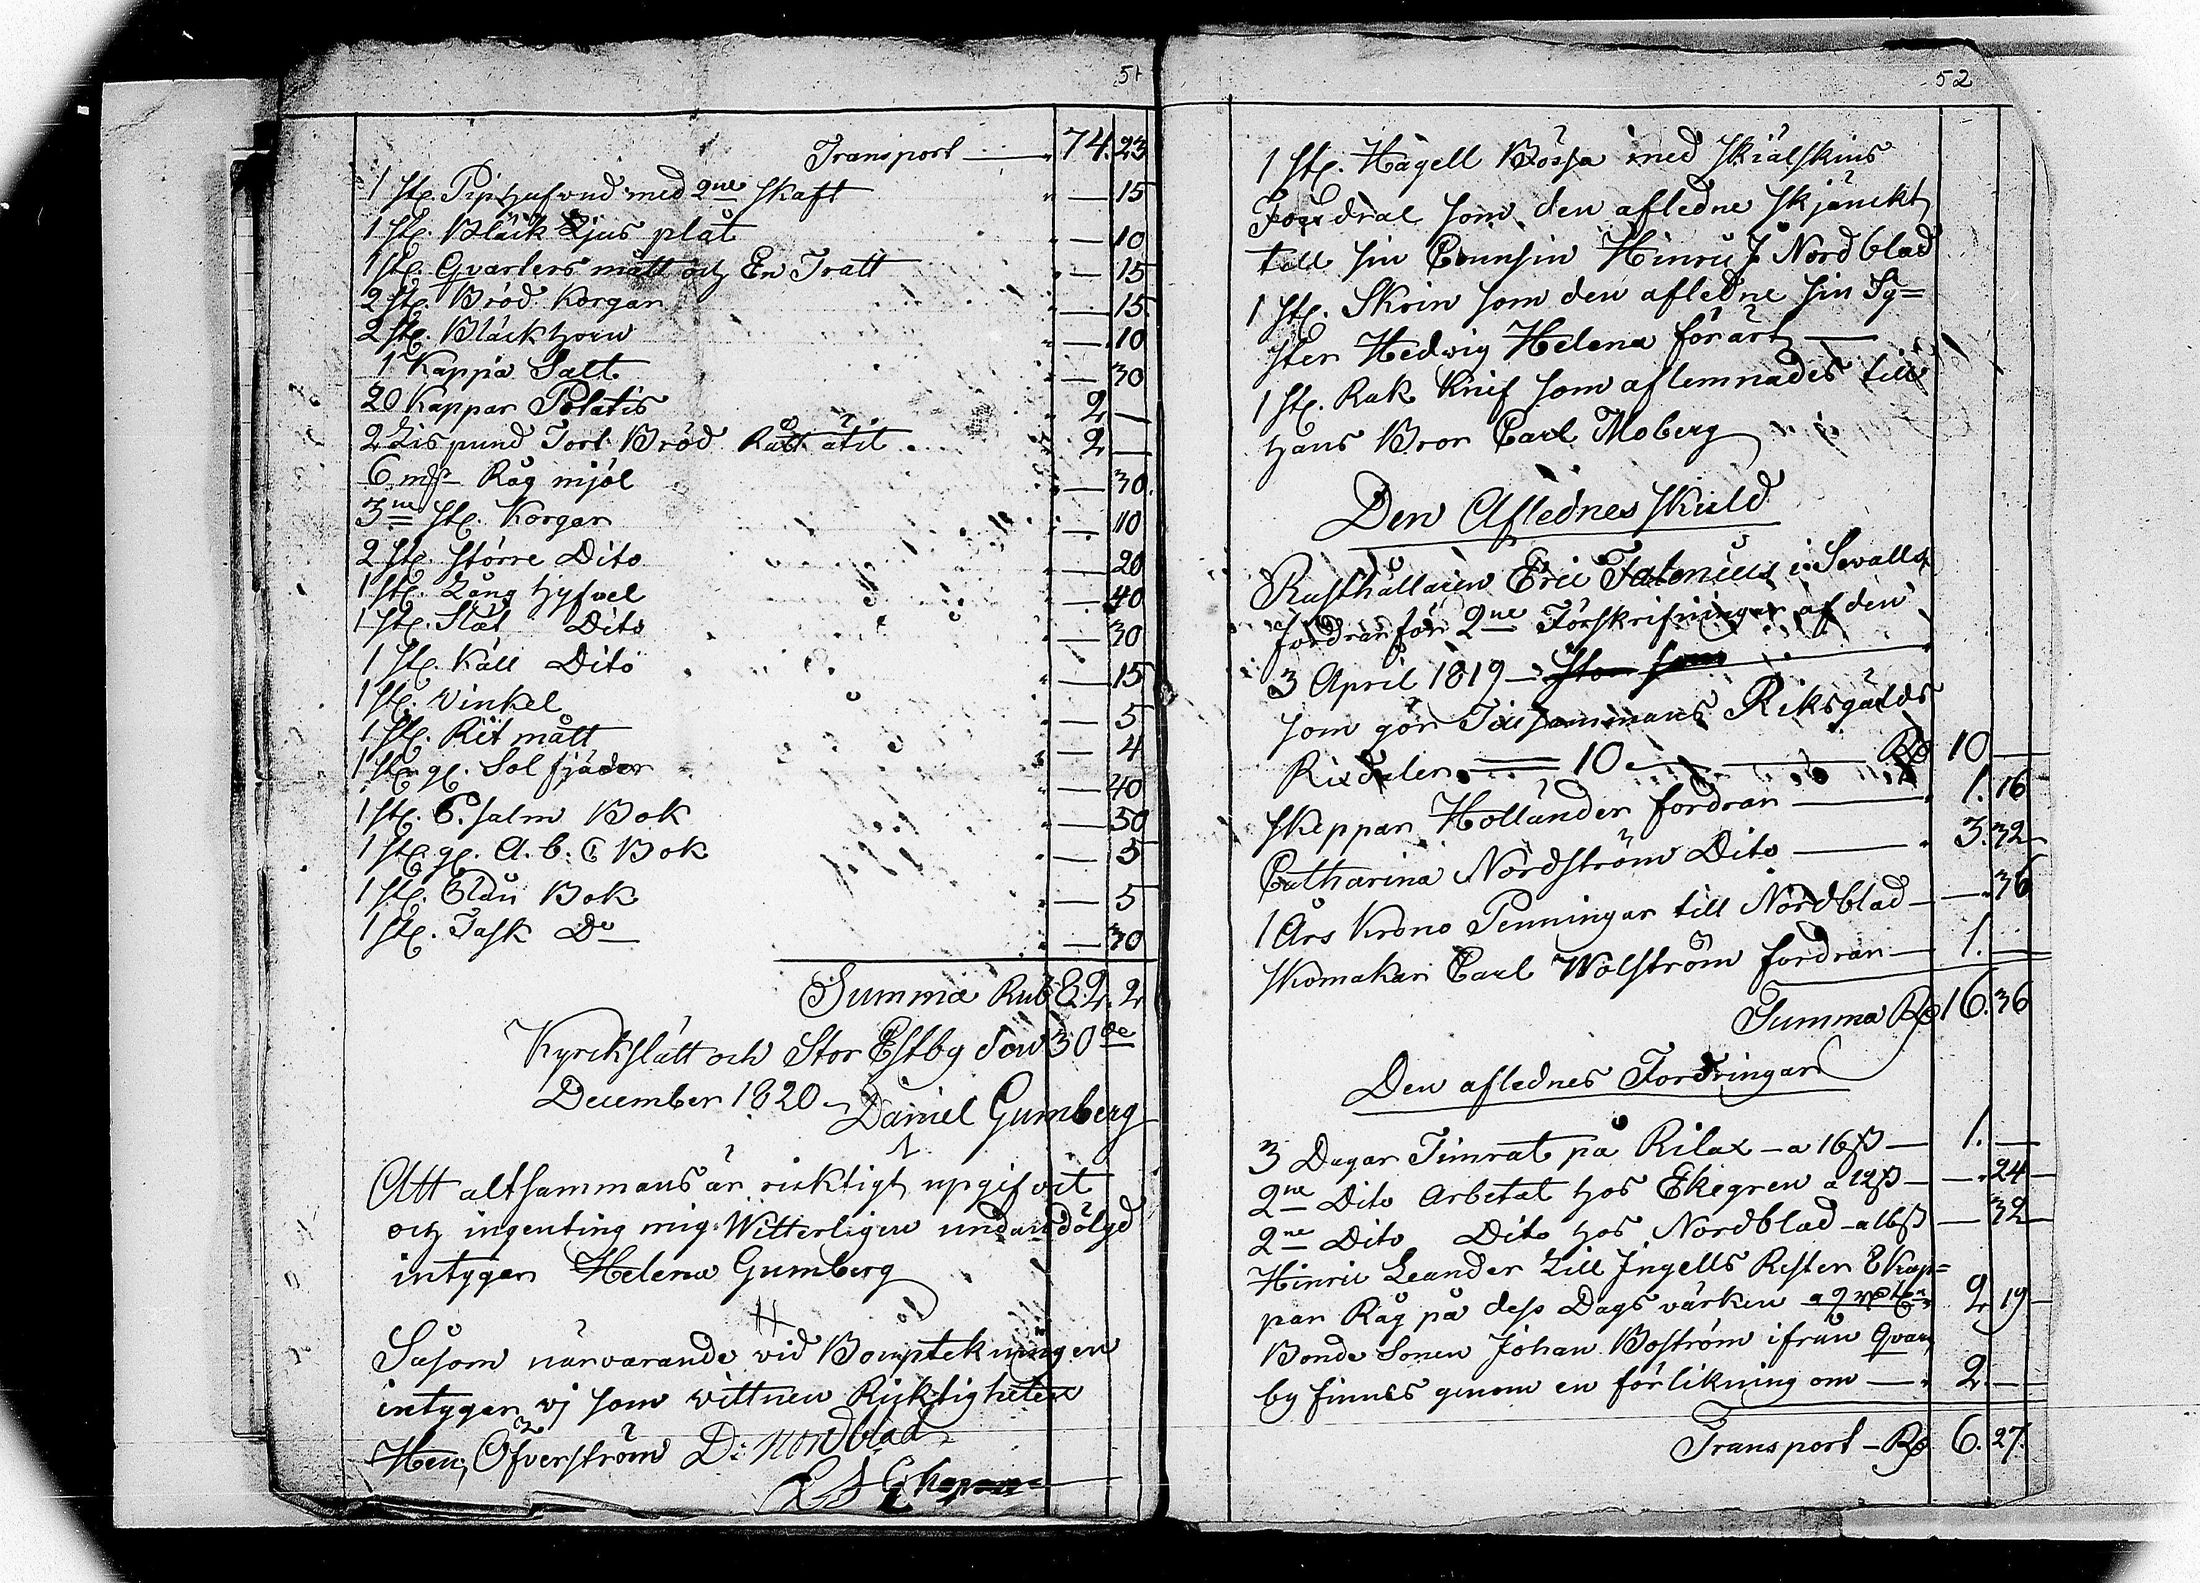 51
Transport — 74. 23
1 st. Piphufvud med 2ne Skaft " — 15
1 st. Bläck Ljus plåt " — 10
1 st. Qvarters mått och En Tratt " — 15
2 st. Bröd Korgar — 15
2 st. Bläckhorn " — 10
1 Kappa Salt " — 30
20 Kappar Potatis " 2 —
2 Lispund Tort Bröd " 2 —
6 m Råg mjöl " — 30
3ne st. Korgar " — 10
2 st. större Dito — 20
1 st. Lång hyfvel " — 40
1 st. Slät Dito " — 30
1 st. Käll Dito " — 15
1 st. Vinkel " — 5
1 st. Rit mått " — 4
1 st. gl. Sol fjäder " — 40
1 st. P.salm Bok " — 30
1 st. gl. A.b:C Bok " — 5
1 st. Blå Bok " — 5
1 st. Task Do " — 30
Summa Rub 82. 2
Kyrckslätt och Stor Estby den 30de
December 1820 Daniel Gumberg
Att altsammans är ricktigt upgifvit
och ingenting mig Witterligen undandölgd
intygar Helena Gumberg
Såsom närvarande vid Bouptekningen
intygar vi som vittnen Ricktigheten
Hen; Öfverström D: Nordblad
52
1 st. Hagell Bössa med Skiälskins
Foudral som den afledne skjänckt
till sin Cousin Hinric J Nordblad
1 st. Skrin som den afledne sin Sy=
ster Hedvig Helena förärt —
1 st. Rak Knif som aflemnades till
hans Bror Carl Moberg
Den Aflednes Skuld
Rusthållaren Eric Falenius i Sevalls
fordrar för 2ne Förskrifningar af den
3 April 1819 —
som gör Tillsammans Riksgälds
Rixdaler — 10 — Ro 10 —
Skeppar Hollander fordrar — " 1. 16
Catharina Nordström Dito — " 3. 32
1 Års Krono Penningar till Nordblad — — " 36
Skomakar Carl Wolström fordrar — 1. —
Summa Ro 16. 36
Den aflednes Fordringar
3 Dagar Timrat på Rilax — a 16 ß — 1. —
2ne Dito Arbetat hos Ekegren a 12 ß — — " 24
2ne Dito Dito hos Nordblad — a 16 ß — 32
Hinric Leander Till Ingells Rester 8 Kap=
par Råg på dess Dags värken 2. 19
Bonde Sonen Johan Boström ifrån Qvar
by finnes genom en förlikning om — " 2. —
Transport — Ro 6. 27.